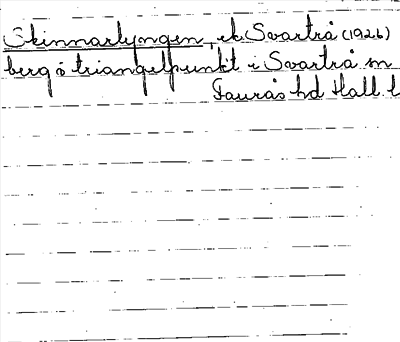 Skinnarlyngen, ek Svartrå (1926)
berg o triangelpunkt i Svartrå sn
Faurås hd Hall. l